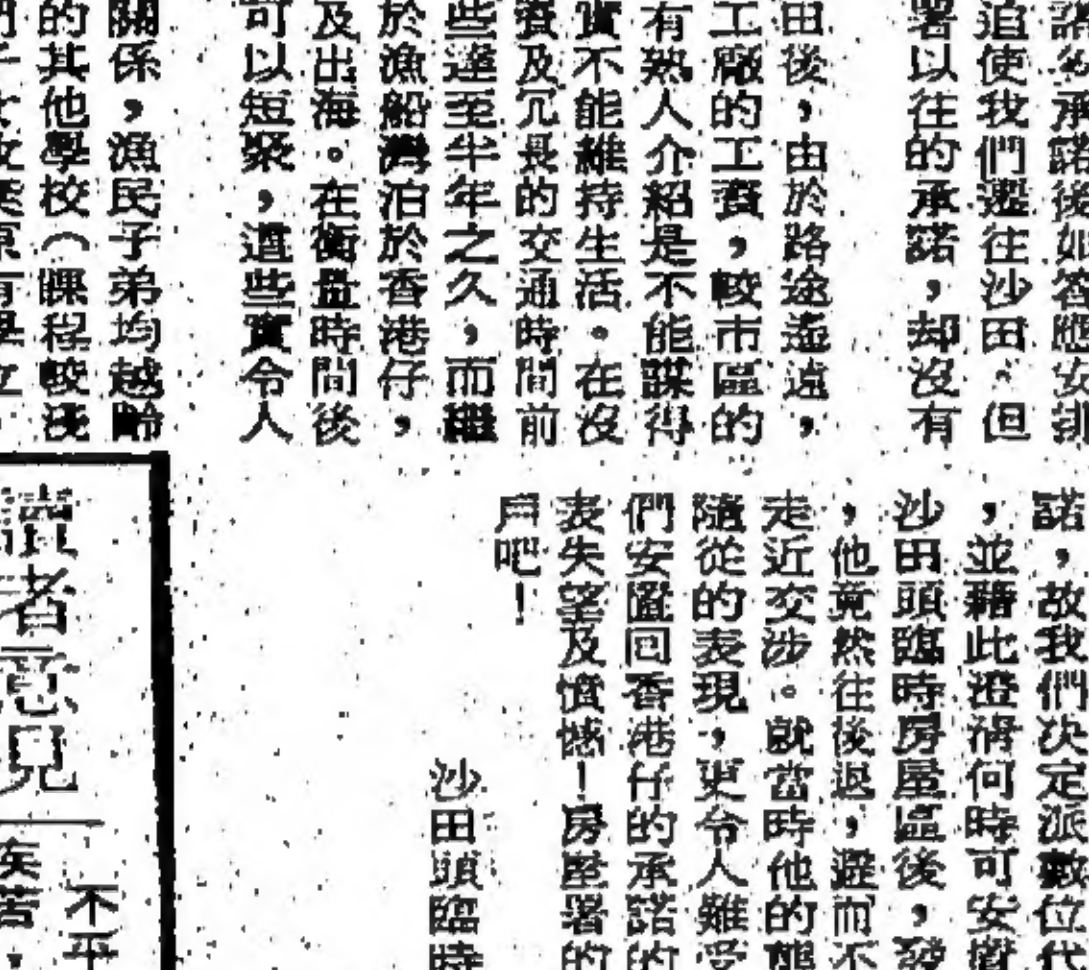 諾後如答應安排
迫使我們遷往沙田。但
署以往的承諾,却沒有
田後,由於路途遙遠,
工廠的工資,較市區的
有熟人介紹是不能謀得
實不能維持生活。在沒
資及冗長的交通時間前
些達至半年之久,而繼
於漁船灣泊於香港仔,
及出海。在衡量時間後
可以短聚,這些實令人
關係,漁民子弟均越齡
的其他學校(課程較淺
諾,故我們決定派數位代
,並藉此澄清何時可安
沙田頭臨時房屋區後,發
,他竟然往後退,避而不
走近交涉。就當時他的態
隨從的表現,更令人難受
們安置回香港仔的承諾的
表失望及憤憾!房屋署的
戶吧!
沙田頭臨時
讀者意見
不平
疾苦,